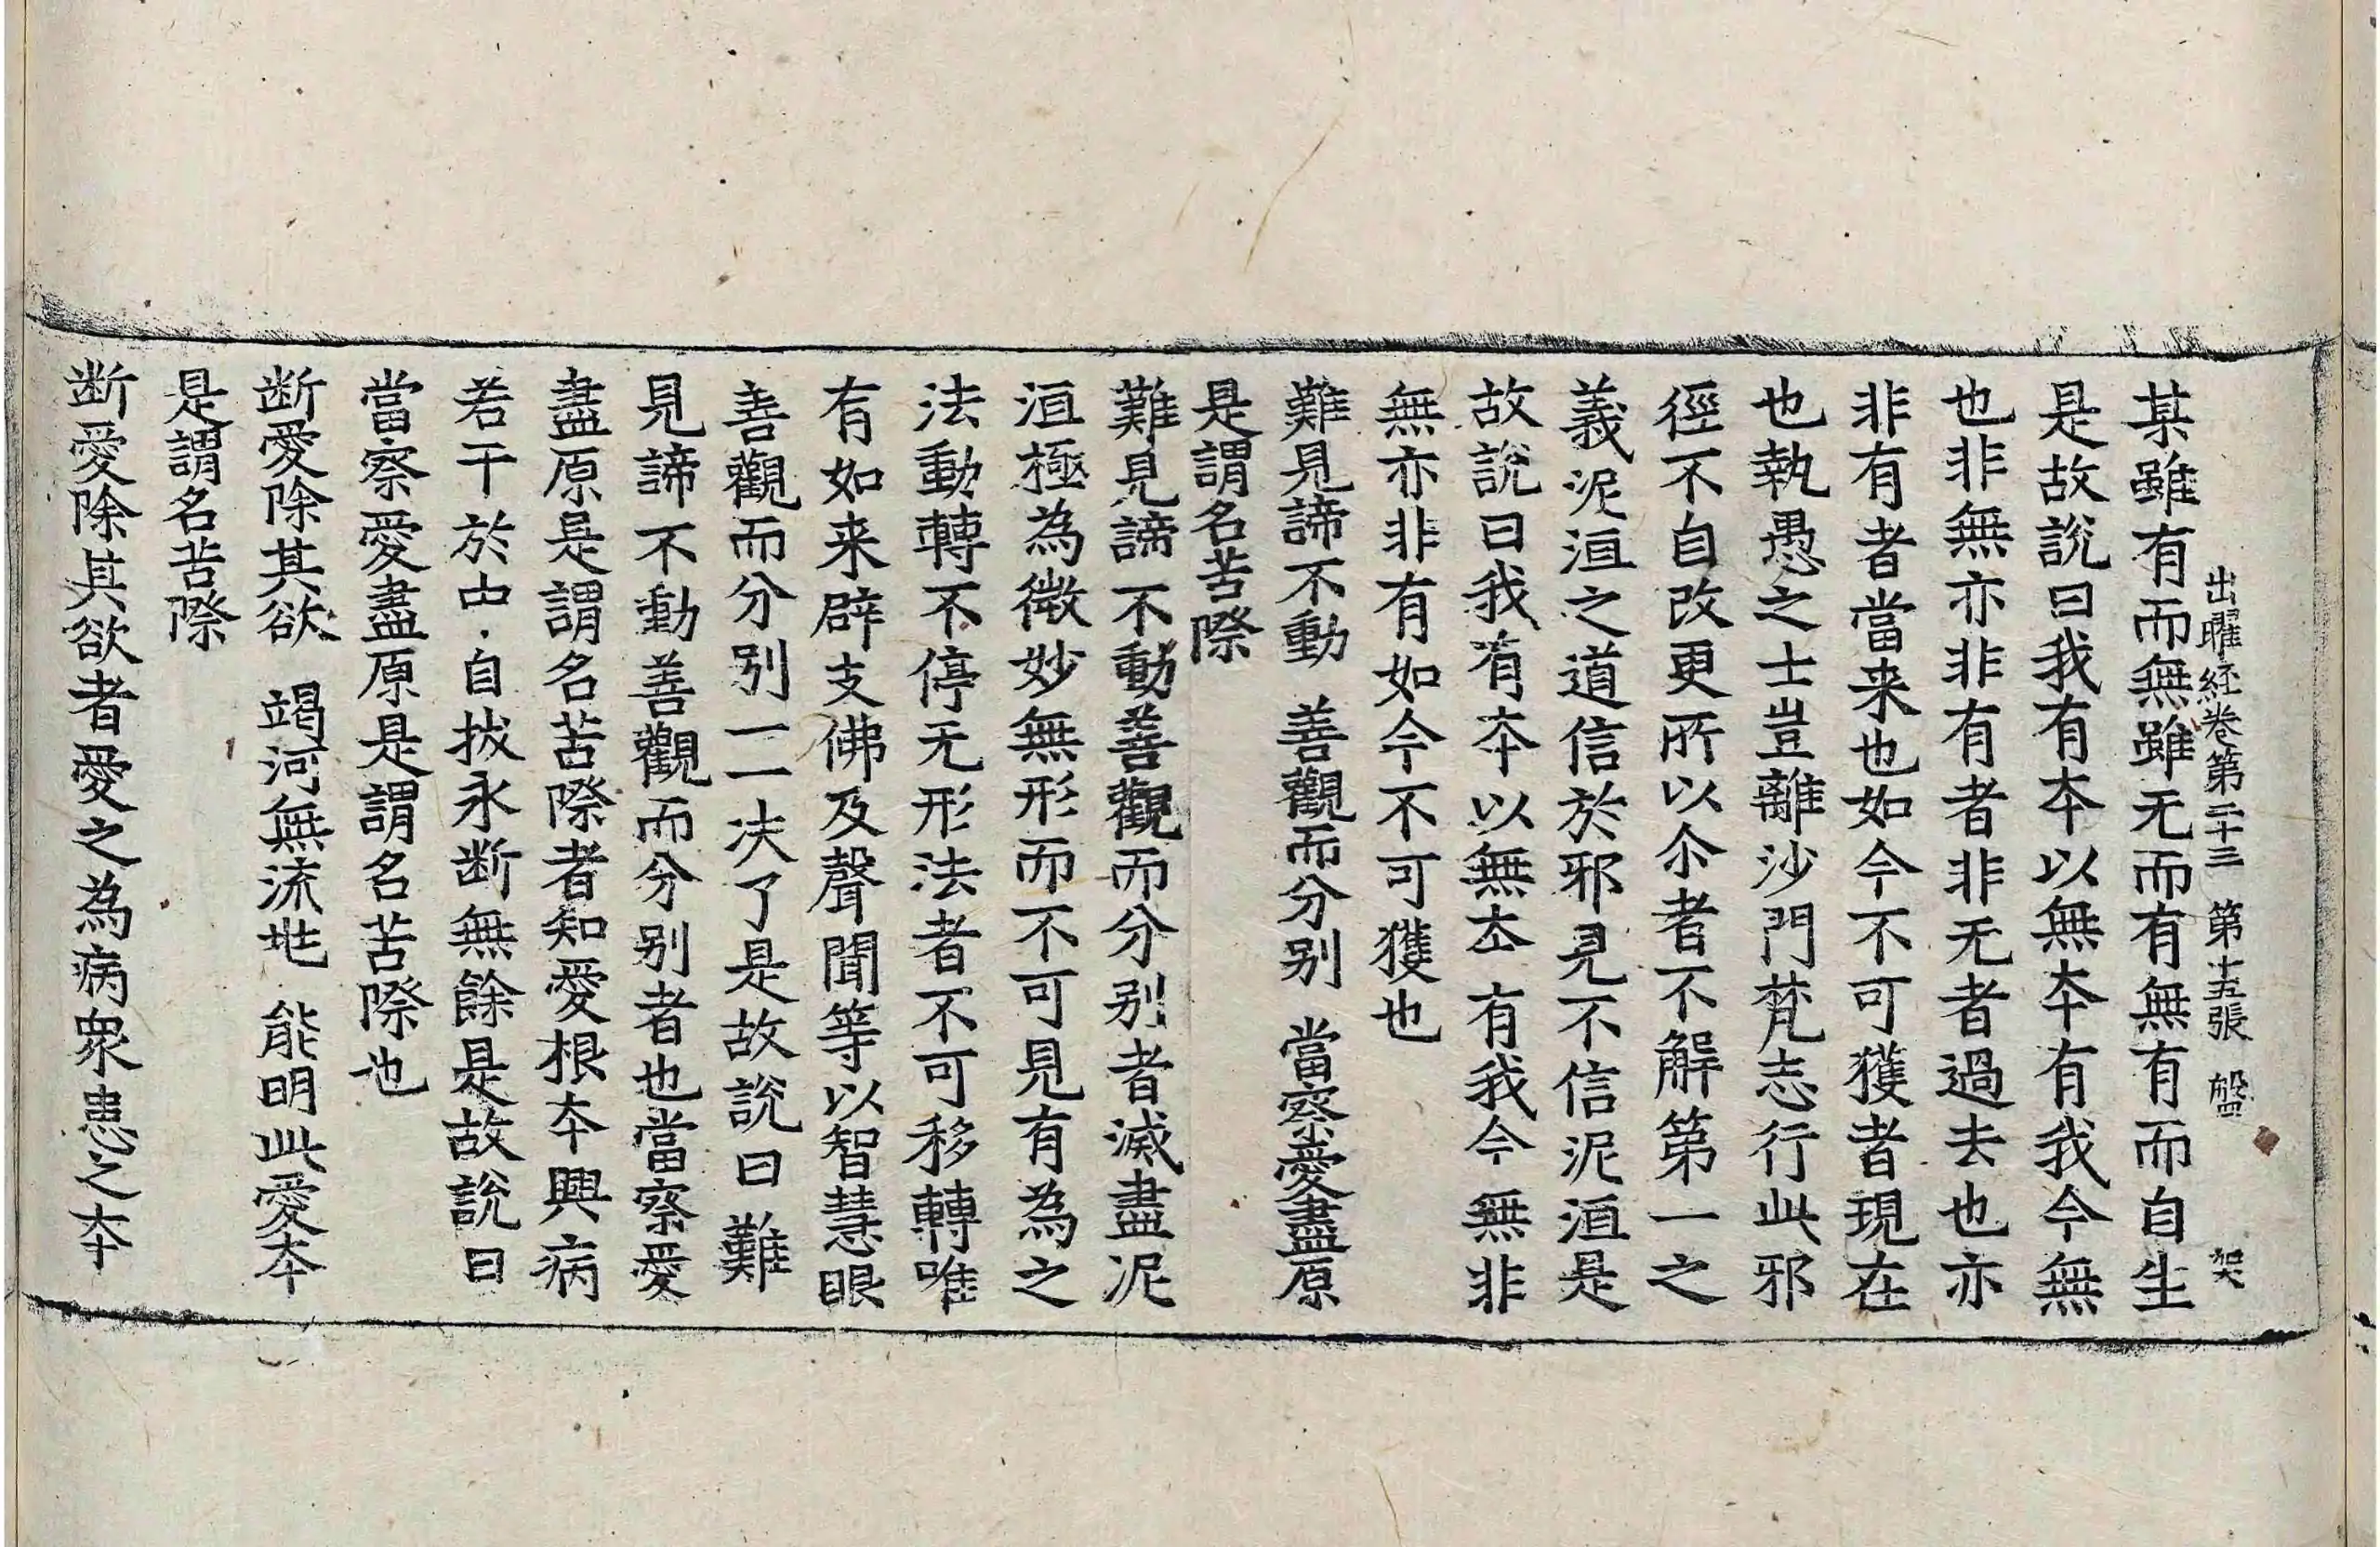 出曜経卷第二十三　第十五張　盤　哭
某雖有而無雖无而有無有而自生
是故說曰我有夲以無夲有我今無
也非無亦非有者非无者過去也亦
非有者當来也如今不可獲者現在
也執愚之士豈離沙門梵志行此邪
徑不自改更所以尒者不解第一之
義泥洹之道信於邪見不信泥洹是
故說曰我有夲以無夲　有我今無非
無亦非有如今不可獲也
難見諦不動　善觀而分别　當察愛盡原
是謂名苦際
難見諦不動善觀而分别者滅盡泥
洹極為微妙無形而不可見有為之
法動轉不停无形法者不可移轉唯
有如来辟支佛及聲聞等以智慧眼
善觀而分別一二决了是故說曰難
見諦不動善觀而分别者也當察愛
盡原是謂名苦際者知愛根夲興病
若干於中自拔永断無餘是故說曰
當察愛盡原是謂名苦際也
断愛除其欲　竭河無流㘴　能明此愛夲
是謂名苦際
断愛除其欲者愛之為病衆患之夲